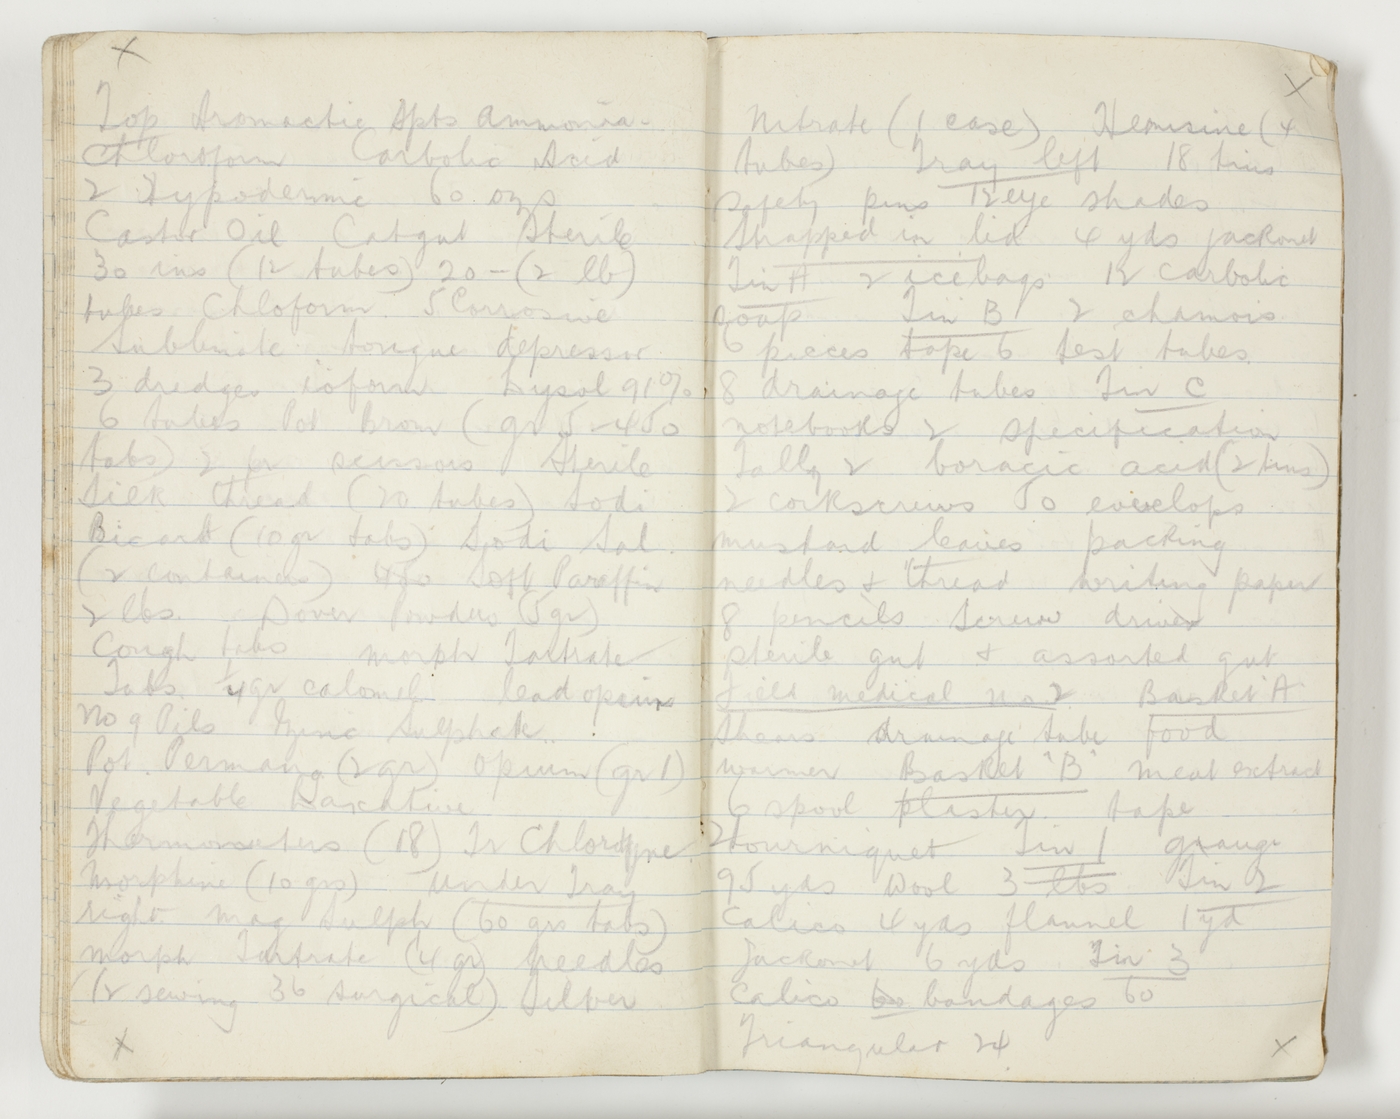 Top Aromactic Spts Ammonia-
Chloroform Carbolic Acid
2 Hypodermic 60 ozs
Castor Oil Catgut Sterile
30 ins (12 tubes) 20 - (2 lb)
tubes Chloform 5 Corrosive
Sublimate tongue depressor
3 dredges ioform Lysol 91%
6 tubes Pot Brom (gr 5 - 450
tabs) 2 pr scissors Sterile
Silk thread (20 tubes) Sodi
Bicarb (10 gr tabs) Sodi Sal
(2 containers) 450 Soft Paraffin
2 lbs. Dover Powders (5gr)
Cough tabs morph Tartrate
Tabs ¼gr calomel lead opium
No 9 Pils Zinc Sulphate
Pot. Permang (2gr) Opium (gr 1)
Vegetable Laxative
Thermometers (18) Tr Chlorodyne
Morphine (10 grs) Under Tray
right mag Sulph (60 grs tabs)
morph Tartrate (4 gr) needles
(12 sewing 36 surgical) Silver
Nitrate (1 case) Hemisine (4
tubes) Tray left 18 tins
safety pins 12 eye shades
Strapped in lid 4 yds jackonet
Tin A 2 icebags 12 carbolic
soap Tin B 2 chamois
6 pieces tape 6 test tubes
8 drainage tubes Tin C
notebooks 2 specification
Tally 2 boracic acid (2 tins)
2 corkscrews 50 envelops
mustard leaves packing
needles & thread writing paper
8 pencils Screw driver
sterile gut & assorted gut
Field medical no 2 Basket A
Shears drainage tube food
warmer Basket "B" meat extract
6 spool plaster tape
2 tourniquet Tin 1 guauge
95 yds Wool 3 lbs Tin 2
Calico 4 yds flannel 1 yd
Jackonet 6 yds Tin 3
Calico bandages 60
Triangular 24